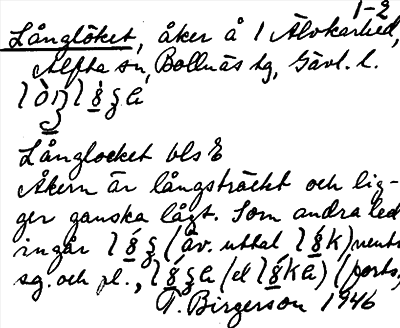 1-2
Långlöket, åker å 1 Älvkarhed,
Alfta sn, Bollnäs tg, Gävl. l.
Långlocket bls E
Åkern är långsträckt och lig-
ger ganska lågt. Som andra led
ingår (äv. uttal neutr.
sg. och pl., (el (forts.)
T. Birgerson 1946